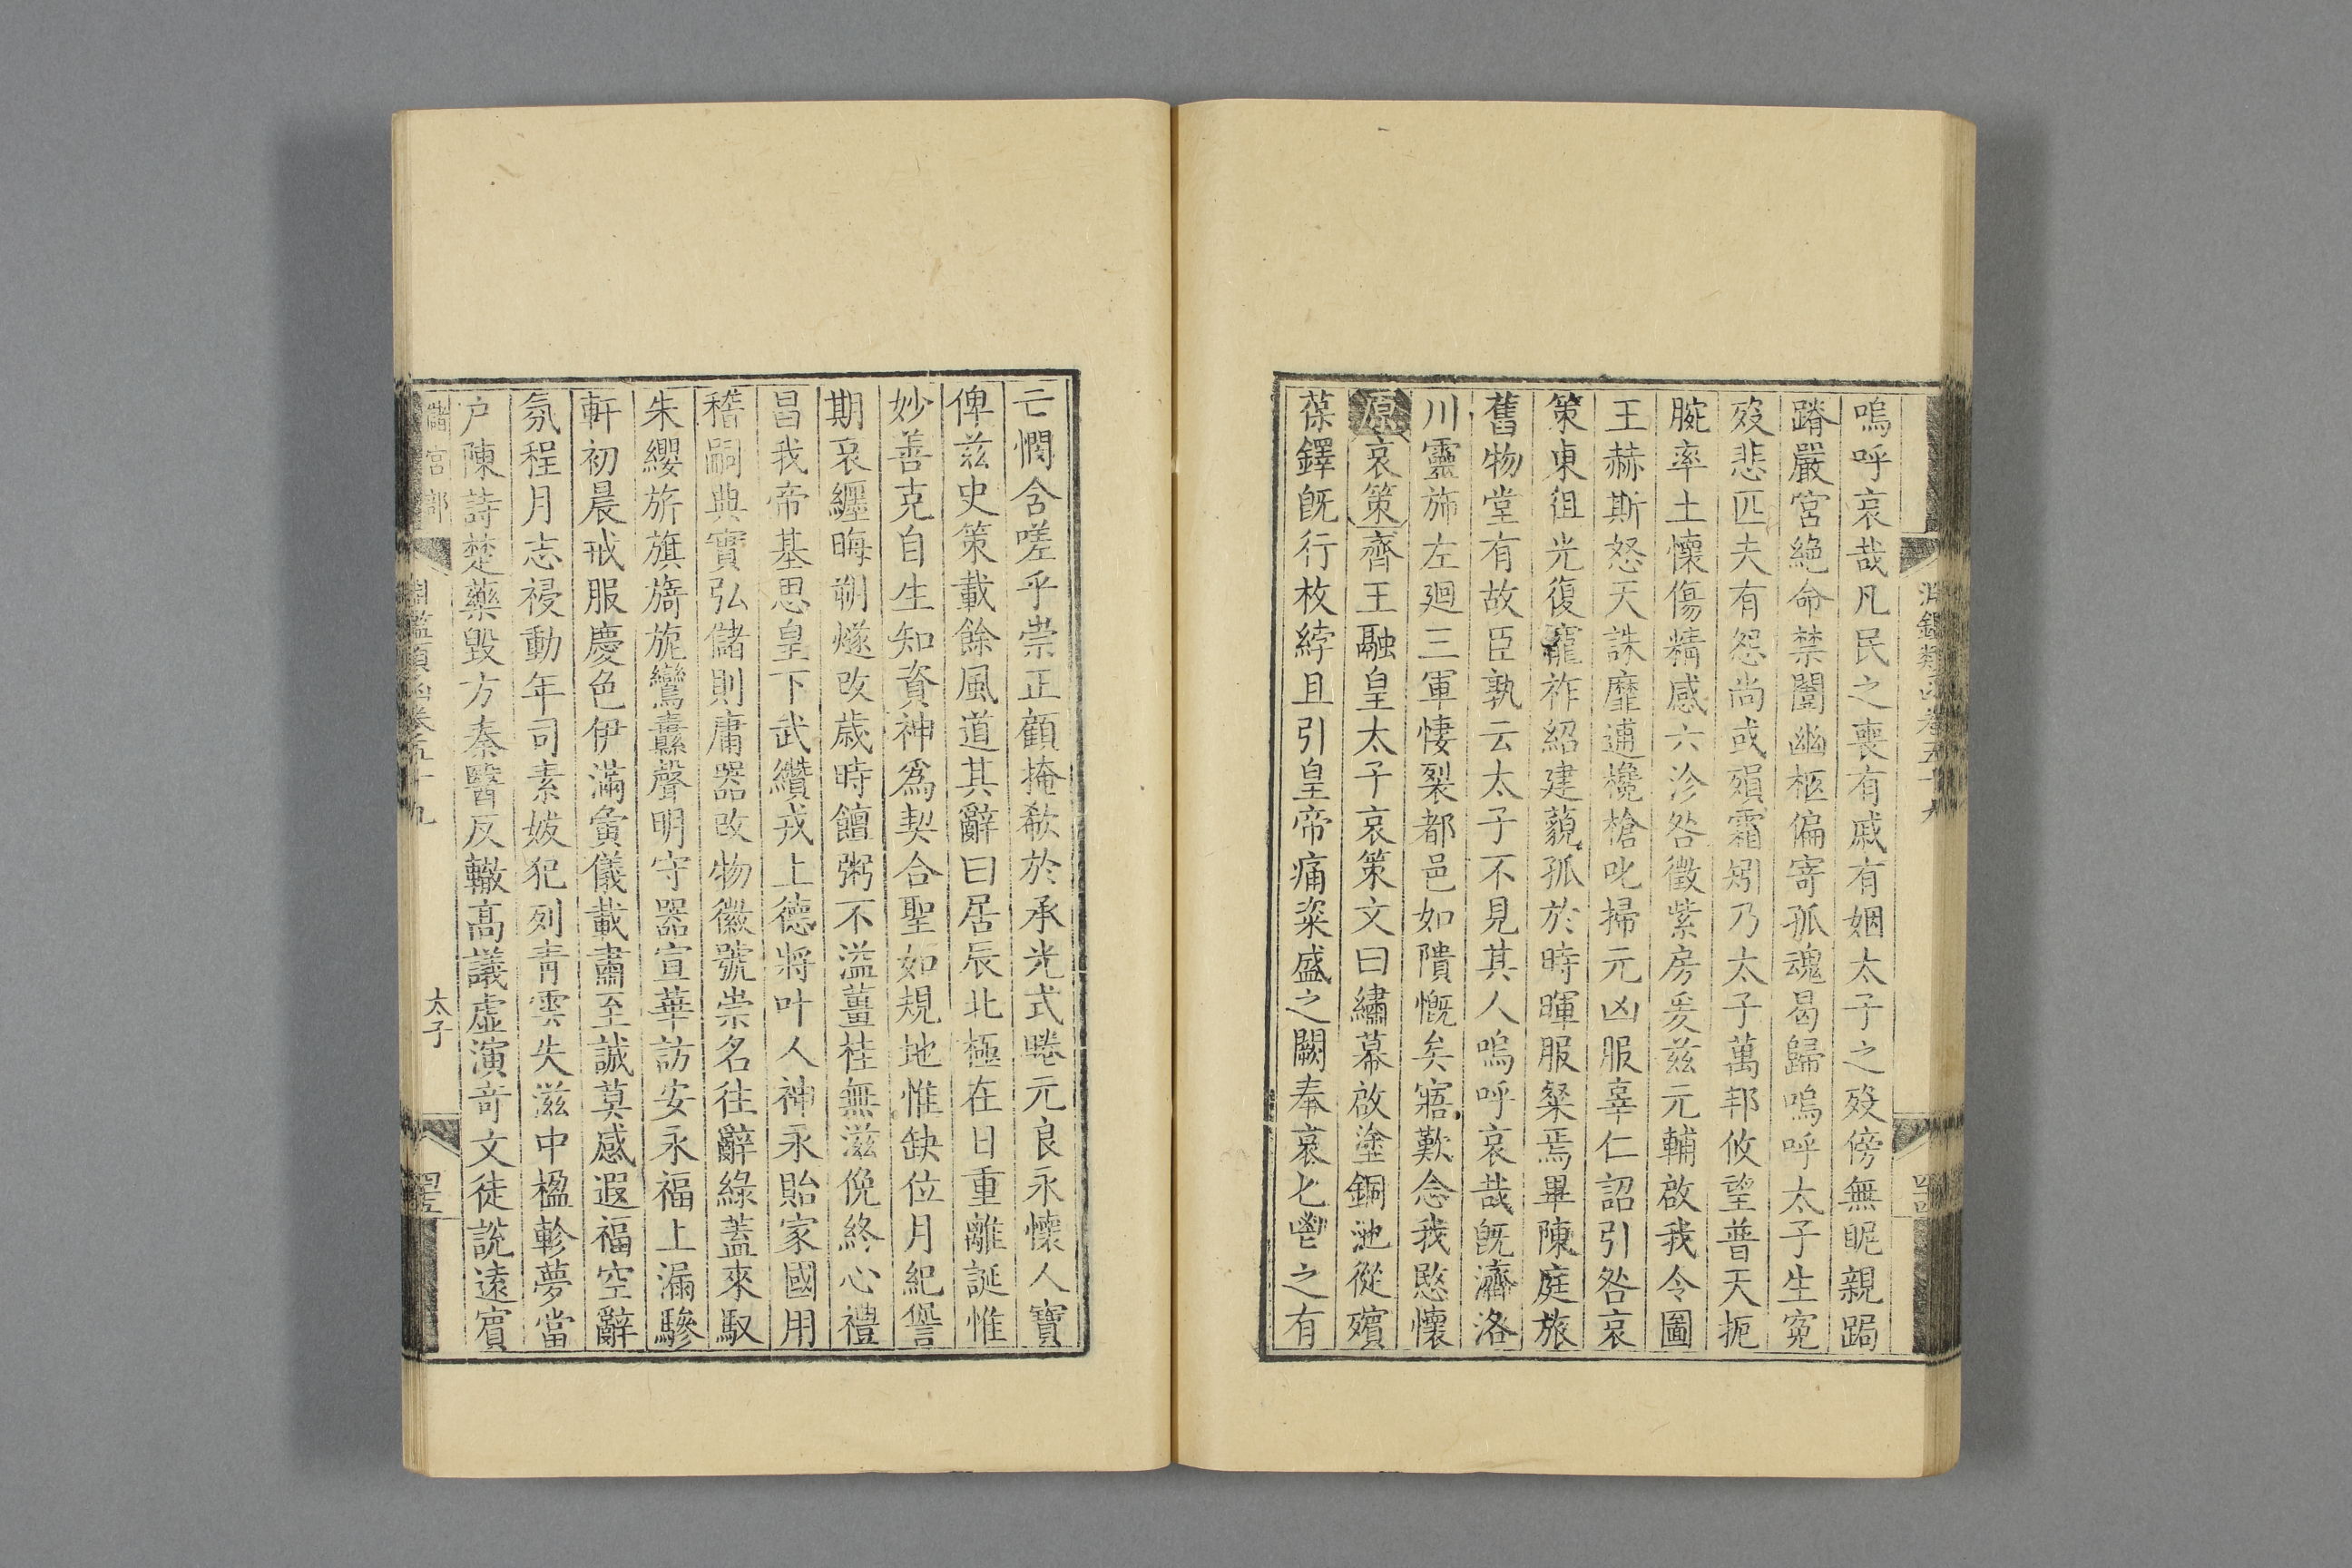 嗚呼哀哉凡民之喪有戚有姻太子之歿傍無昵親跼
蹐嚴宮絶命禁闥幽柩偏寄孤魂曷歸嗚呼太子生寃
歿悲匹夫有怨尚或殞霜矧乃太子萬邦攸望普天扼
腕率土懷傷精感六沴咎徵紫房爰兹元輔啟我令圖
王赫斯怒天誅靡逋欃槍叱掃元凶服辜仁詔引咎哀
策東徂光復寵祚紹建藐孤於時暉服粲焉畢陳庭旅
舊物堂有故臣孰云太子不見其人嗚呼哀哉旣濟洛
川靈斾左廻三軍悽裂都邑如隤慨矣寤歎念我愍懷
原哀策齊王融皇太子哀策文曰繡幕啟塗銅池從殯
葆鐸旣行枚綍且引皇帝痛粢盛之闕奉哀匕鬯之有
亡憫含嗟乎崇正顧掩欷於承光式睠元良永懷人寶
俾兹史策載餘風道其辭曰居辰北極在日重離誕惟
妙善克自生知資神爲契合聖如規地惟缺位月紀譽
期哀纒晦朔燧改歲時饘粥不溢薑桂無滋俛終心禮
昌我帝基思皇下武纘戎上德將叶人神永貽家國用
稽嗣典寶弘儲則庸器改物徽號崇名往辭綠蓋來馭
朱纓旂旗旖旎鸞纛聲明守器宣華訪安永福上漏驂
軒初晨戒服慶色伊滿賓儀載肅至誠莫感遐福空辭
氛程月志祲動年司素妭犯列靑雲失滋中楹軫夢當
户陳詩楚藥毀方秦醫反轍高議虛演竒文徒說遠賔
儲宮部
淵鑑類函卷五十九
太子